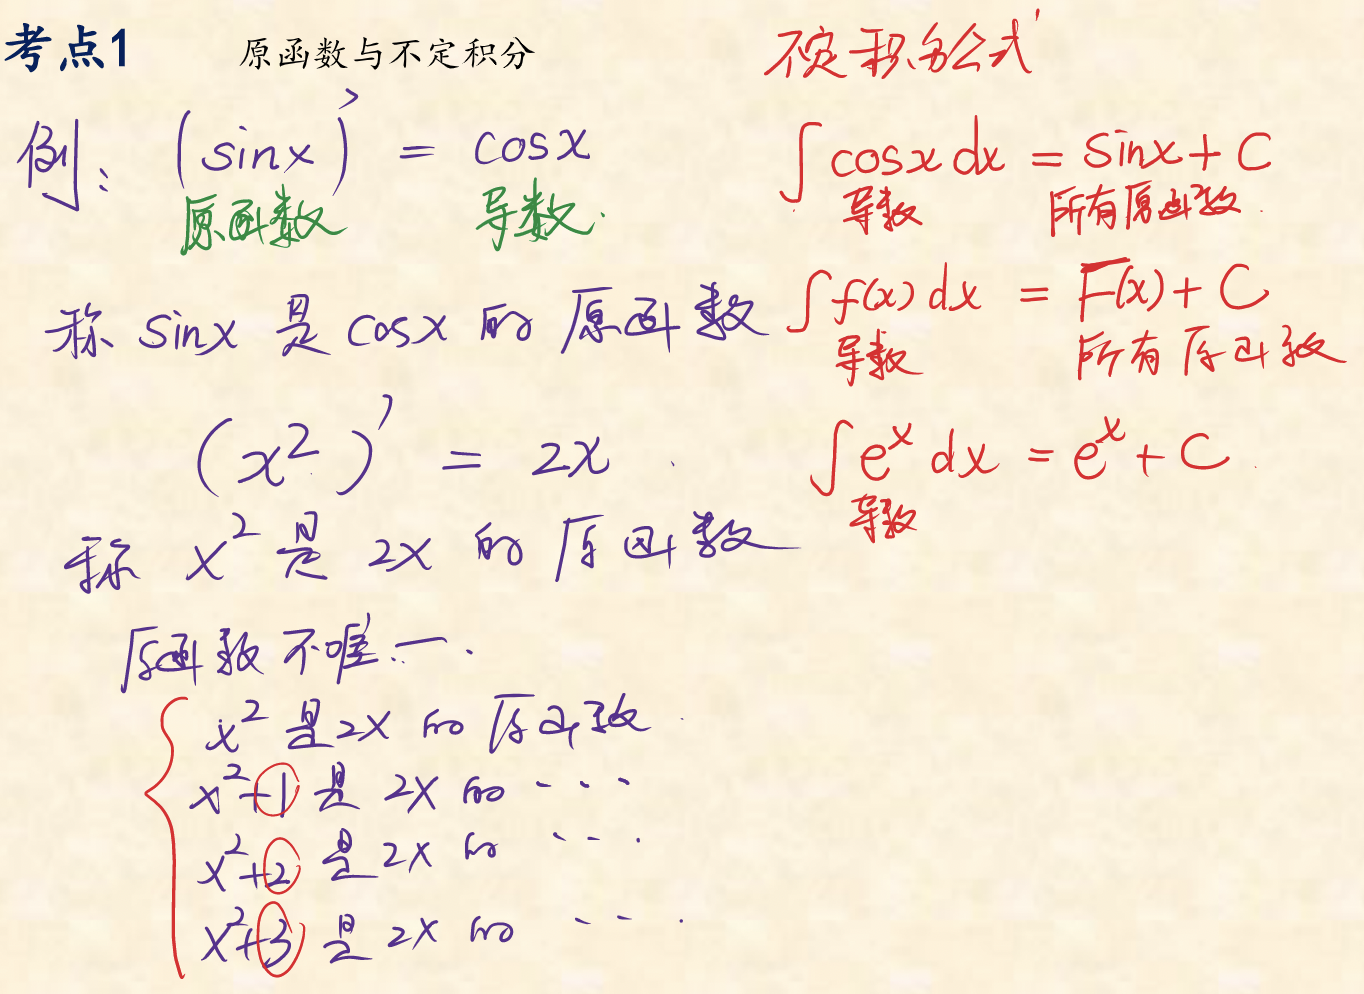 考点1 原函数与不定积分
例: (sinx)' = cosx
原函数 导数.
称 sinx 是 cosx 的 原函数
(x²)' = 2x
称 x² 是 2x 的 原函数
原函数不唯一.
x² 是 2x 的 原函数.
x²+1 是 2x 的 ···
x²+2 是 2x 的 ···
x²+3 是 2x 的 ···
不定积分公式
∫cosx dx = sinx + C
导数 所有原函数.
∫f(x) dx = F(x) + C
导数 所有原函数
∫eˣ dx = eˣ + C.
导数